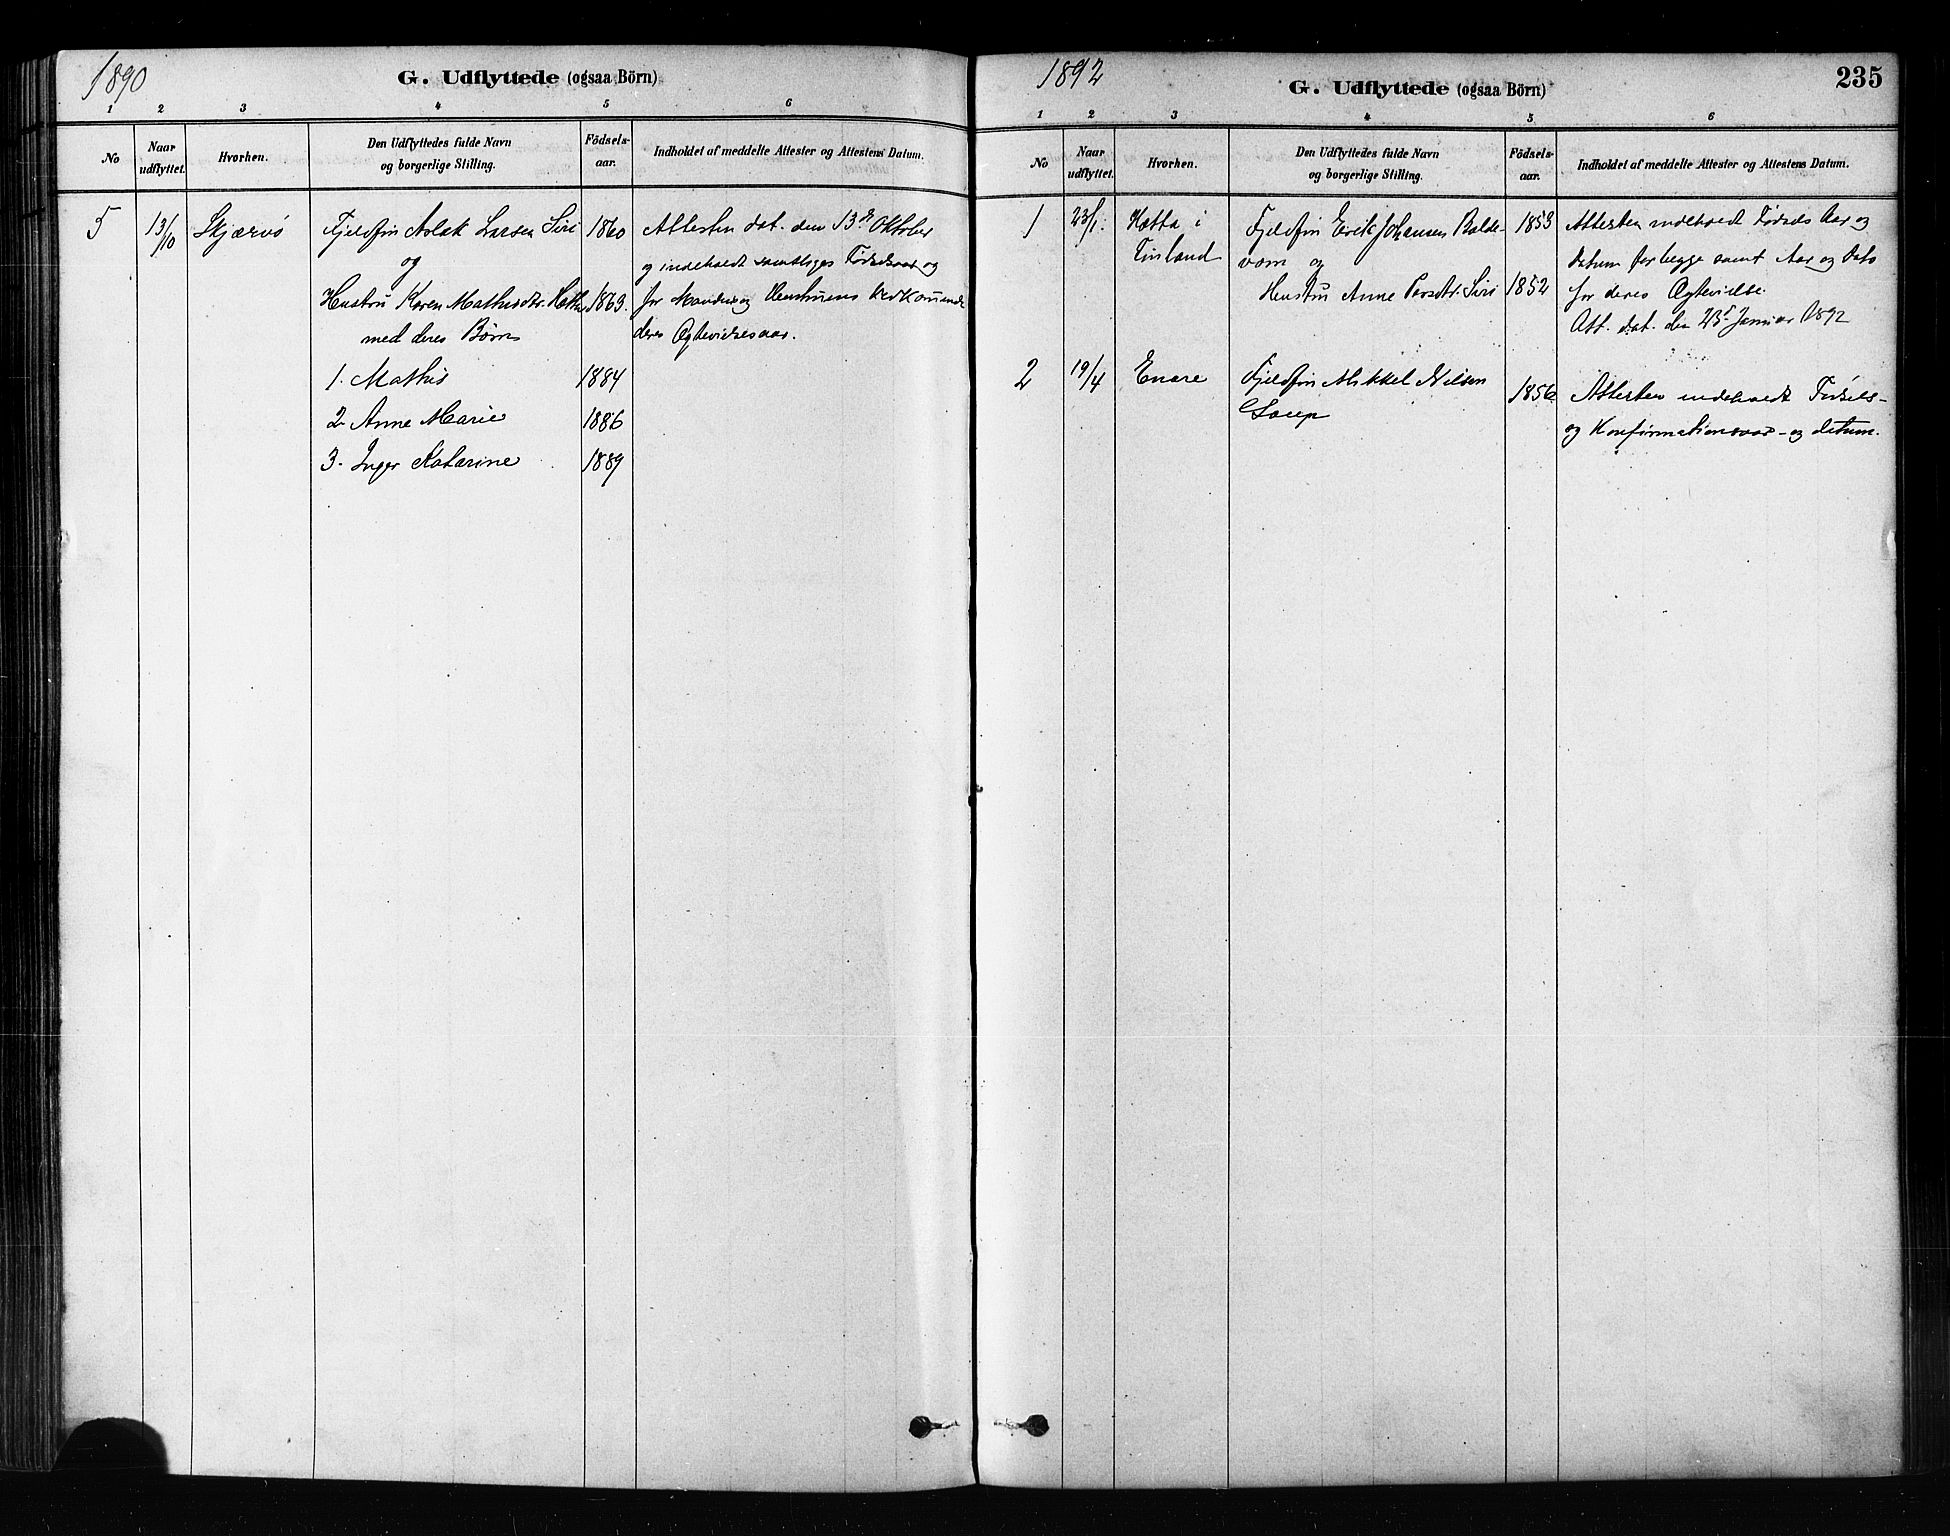 1890
G. Udflyttede (ogsaa Börn)
1 2 3 4 5 6
No
Naar udflyttet.
Hvorhen.
Den Udflyttedes fulde Navn og borgerlige Stilling.
Födsels-aar.
Indholdet af meddelte Attester og Attestens Datum.
5 13/10 Skjærvö Fjeldfin Aslak Larsen Siri 1860 Attesten dat. den 13de Oktober
og og indeholdt samtliges Fødselsaar og
Hustru Karen Mathisdtr. Hætta 1863. for Mandens og Hustruens Vedkommende
med deres Børn deres Ægtevielsesaar.
1. Mathis 1884
2 Anne Marie 1886
3. Inger Katarine 1889
1892
G. Udflyttede (ogsaa Börn)
235
1 2 3 4 5 6
No
Naar udflyttet.
Hvorhen.
Den Udflyttedes fulde Navn og borgerlige Stilling.
Födsels-aar.
Indholdet af meddelte Attester og Attestens Datum.
1 23/1. Hætta i Fjeldfin Erik Johansen Balde- 1853 Attesten indeholdt Fødsels Aar og
Finland vom og Datum for begge samt Aar og Dato
Hustru Anne Persdtr. Siri 1852 for deres Ægtevielse.
Att. dat. den 23d Januar 1892
2 19/4 Enare Fjeldfin Mikkel Nilsen 1856 Attesten indeholdt Fødsels-
og Konfirmationsaar- og datum.